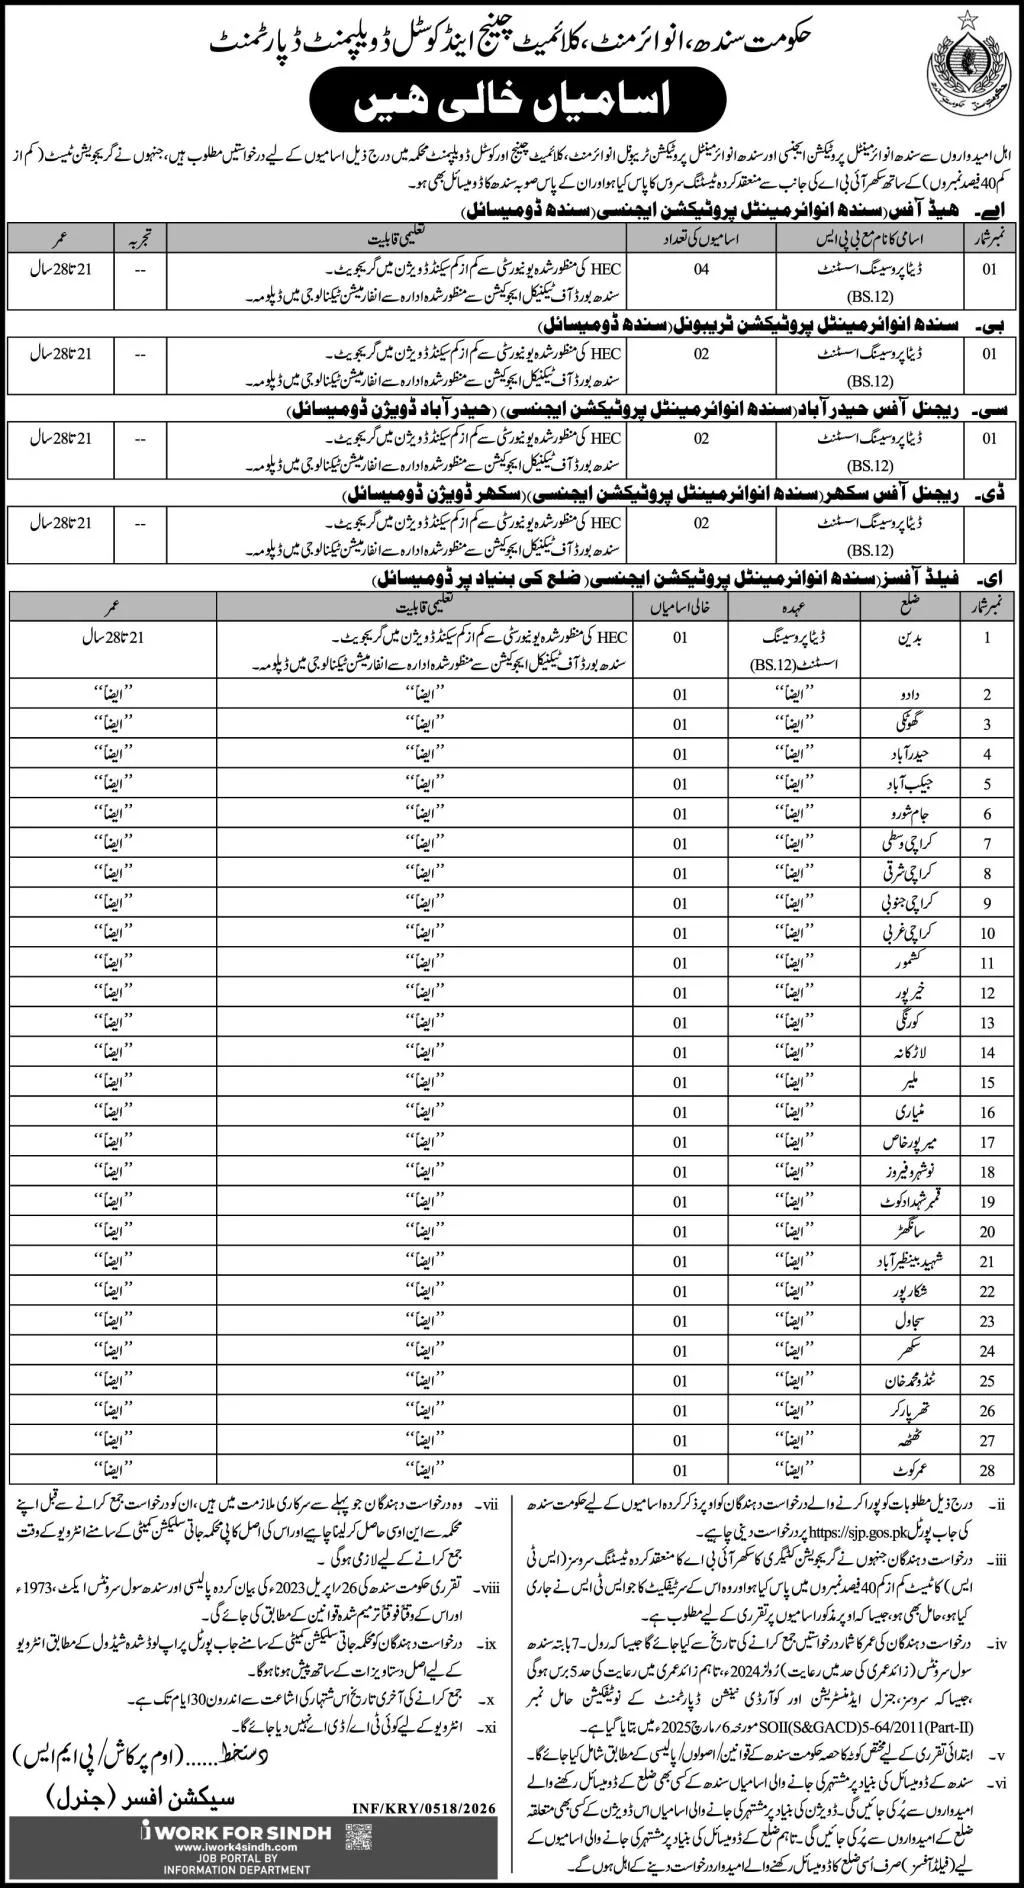 حکومت سندھ، انوائرمنٹ، کلائمیٹ چینج اینڈ کوسٹل ڈویلپمنٹ ڈپارٹمنٹ
اسامیاں خالی ہیں
اہل امیدواروں سے سندھ انوائرمینٹل پروٹیکشن ایجنسی اور سندھ انوائرمینٹل پروٹیکشن ٹریبونل انوائرمنٹ، کلائمیٹ چینج اور کوسٹل ڈویلپمنٹ محکمہ میں درج ذیل اسامیوں کے لیے درخواستیں مطلوب ہیں، جنہوں نے گریجویشن ٹیسٹ (کم از
کم 40 فیصد نمبروں) کے ساتھ سکھر آئی بی اے کی جانب سے منعقد کردہ ٹیسٹنگ سروس کا پاس کیا ہو اور ان کے پاس صوبہ سندھ کا ڈومیسائل بھی ہو۔
اے۔ ہیڈ آفس (سندھ انوائرمینٹل پروٹیکشن ایجنسی (سندھ ڈومیسائل)
نمبر شمار اسامی کا نام مع بی پی ایس اسامیوں کی تعداد تعلیمی قابلیت تجربہ عمر
01 ڈیٹا پروسیسنگ اسسٹنٹ 04 HEC کی منظور شدہ یونیورسٹی سے کم از کم سیکنڈ ڈویژن میں گریجویٹ۔ -- 21 تا 28 سال
(BS.12) سندھ بورڈ آف ٹیکنیکل ایجوکیشن سے منظور شدہ ادارہ سے انفارمیشن ٹیکنالوجی میں ڈپلومہ۔
بی۔ سندھ انوائرمینٹل پروٹیکشن ٹریبونل (سندھ ڈومیسائل)
01 ڈیٹا پروسیسنگ اسسٹنٹ 02 HEC کی منظور شدہ یونیورسٹی سے کم از کم سیکنڈ ڈویژن میں گریجویٹ۔ -- 21 تا 28 سال
(BS.12) سندھ بورڈ آف ٹیکنیکل ایجوکیشن سے منظور شدہ ادارہ سے انفارمیشن ٹیکنالوجی میں ڈپلومہ۔
سی۔ ریجنل آفس حیدرآباد (سندھ انوائرمینٹل پروٹیکشن ایجنسی) (حیدرآباد ڈویژن ڈومیسائل)
01 ڈیٹا پروسیسنگ اسسٹنٹ 02 HEC کی منظور شدہ یونیورسٹی سے کم از کم سیکنڈ ڈویژن میں گریجویٹ۔ -- 21 تا 28 سال
(BS.12) سندھ بورڈ آف ٹیکنیکل ایجوکیشن سے منظور شدہ ادارہ سے انفارمیشن ٹیکنالوجی میں ڈپلومہ۔
ڈی۔ ریجنل آفس سکھر (سندھ انوائرمینٹل پروٹیکشن ایجنسی) (سکھر ڈویژن ڈومیسائل)
ڈیٹا پروسیسنگ اسسٹنٹ 02 HEC کی منظور شدہ یونیورسٹی سے کم از کم سیکنڈ ڈویژن میں گریجویٹ۔ -- 21 تا 28 سال
(BS.12) سندھ بورڈ آف ٹیکنیکل ایجوکیشن سے منظور شدہ ادارہ سے انفارمیشن ٹیکنالوجی میں ڈپلومہ۔
ای۔ فیلڈ آفسز (سندھ انوائرمینٹل پروٹیکشن ایجنسی) (ضلع کی بنیاد پر ڈومیسائل)
نمبر شمار ضلع عہدہ خالی اسامیاں تعلیمی قابلیت عمر
1 بدین ڈیٹا پروسیسنگ 01 HEC کی منظور شدہ یونیورسٹی سے کم از کم سیکنڈ ڈویژن میں گریجویٹ۔ 21 تا 28 سال
اسسٹنٹ (BS.12) سندھ بورڈ آف ٹیکنیکل ایجوکیشن سے منظور شدہ ادارہ سے انفارمیشن ٹیکنالوجی میں ڈپلومہ۔
2 دادو ”ایضاً“ 01 ”ایضاً“ ”ایضاً“
3 گھوٹکی ”ایضاً“ 01 ”ایضاً“ ”ایضاً“
4 حیدرآباد ”ایضاً“ 01 ”ایضاً“ ”ایضاً“
5 جیکب آباد ”ایضاً“ 01 ”ایضاً“ ”ایضاً“
6 جام شورو ”ایضاً“ 01 ”ایضاً“ ”ایضاً“
7 کراچی وسطی ”ایضاً“ 01 ”ایضاً“ ”ایضاً“
8 کراچی شرقی ”ایضاً“ 01 ”ایضاً“ ”ایضاً“
9 کراچی جنوبی ”ایضاً“ 01 ”ایضاً“ ”ایضاً“
10 کراچی غربی ”ایضاً“ 01 ”ایضاً“ ”ایضاً“
11 کشمور ”ایضاً“ 01 ”ایضاً“ ”ایضاً“
12 خیرپور ”ایضاً“ 01 ”ایضاً“ ”ایضاً“
13 کورنگی ”ایضاً“ 01 ”ایضاً“ ”ایضاً“
14 لاڑکانہ ”ایضاً“ 01 ”ایضاً“ ”ایضاً“
15 ملیر ”ایضاً“ 01 ”ایضاً“ ”ایضاً“
16 مٹیاری ”ایضاً“ 01 ”ایضاً“ ”ایضاً“
17 میرپور خاص ”ایضاً“ 01 ”ایضاً“ ”ایضاً“
18 نوشہرو فیروز ”ایضاً“ 01 ”ایضاً“ ”ایضاً“
19 قمبر شہدادکوٹ ”ایضاً“ 01 ”ایضاً“ ”ایضاً“
20 سانگھڑ ”ایضاً“ 01 ”ایضاً“ ”ایضاً“
21 شہید بینظیر آباد ”ایضاً“ 01 ”ایضاً“ ”ایضاً“
22 شکارپور ”ایضاً“ 01 ”ایضاً“ ”ایضاً“
23 سجاول ”ایضاً“ 01 ”ایضاً“ ”ایضاً“
24 سکھر ”ایضاً“ 01 ”ایضاً“ ”ایضاً“
25 ٹنڈو محمد خان ”ایضاً“ 01 ”ایضاً“ ”ایضاً“
26 تھرپارکر ”ایضاً“ 01 ”ایضاً“ ”ایضاً“
27 ٹھٹھہ ”ایضاً“ 01 ”ایضاً“ ”ایضاً“
28 عمرکوٹ ”ایضاً“ 01 ”ایضاً“ ”ایضاً“
ii۔ درج ذیل مطلوبات کو پورا کرنے والے درخواست دہندگان کو اوپر ذکر کردہ اسامیوں کے لیے حکومت سندھ
کی جاب پورٹل https://sjp.gos.pk پر درخواست دینی چاہیے۔
iii۔ درخواست دہندگان جنہوں نے گریجویشن کیٹیگری کا سکھر آئی بی اے کا منعقد کردہ ٹیسٹنگ سروسز (ایس ٹی
ایس) کا ٹیسٹ کم از کم 40 فیصد نمبروں میں پاس کیا ہو اور وہ اس کے سرٹیفکیٹ کا جو ایس ٹی ایس نے جاری
کیا ہو، حامل بھی ہو، جیسا کہ اوپر مذکور اسامیوں پر تقرری کے لیے مطلوب ہے۔
iv۔ درخواست دہندگان کی عمر کا شمار درخواستیں جمع کرانے کی تاریخ سے کیا جائے گا جیسا کہ رول۔7 بابتہ سندھ
سول سرونٹس (زائد عمری کی حد میں رعایت) رُولز 2024ء، تاہم زائد عمری میں رعایت کی حد 5 برس ہوگی
، جیسا کہ سروسز، جنرل ایڈمنسٹریشن اور کوآرڈی نیشن ڈپارٹمنٹ کے نوٹیفکیشن حامل نمبر
SOII(S&GACD)5-64/2011(Part-II) مورخہ 6/ مارچ 2025ء میں بتایا گیا ہے۔
v۔ ابتدائی تقرری کے لیے مختص کوٹا کا حصہ حکومت سندھ کے قوانین/ اصولوں/ پالیسی کے مطابق شامل کیا جائے گا۔
vi۔ سندھ کے ڈومیسائل کی بنیاد پر مشتہر کی جانے والی اسامیاں سندھ کے کسی بھی ضلع کے ڈومیسائل رکھنے والے
امیدواروں سے پُر کی جائیں گی۔ ڈویژن کی بنیاد پر مشتہر کی جانے والی اسامیاں اس ڈویژن کے کسی بھی متعلقہ
ضلع کے امیدواروں سے پُر کی جائیں گی۔ تاہم ضلع کے ڈومیسائل کی بنیاد پر مشتہر کی جانے والی اسامیوں کے
لیے (فیلڈ آفسز) صرف اُسی ضلع کا ڈومیسائل رکھنے والے امیدوار درخواست دینے کے اہل ہوں گے۔
vii۔ وہ درخواست دہندگان جو پہلے سے سرکاری ملازمت میں ہیں، ان کو درخواست جمع کرانے سے قبل اپنے
محکمہ سے این او سی حاصل کر لینا چاہیے اور اس کی اصل کاپی محکمہ جاتی سلیکشن کمیٹی کے سامنے انٹرویو کے وقت
جمع کرانے کے لیے لازمی ہوگی۔
viii۔ تقرری حکومت سندھ کی 26/ اپریل 2023ء کی بیان کردہ پالیسی اور سندھ سول سرونٹس ایکٹ، 1973ء
اور اس کے وقتاً فوقتاً ترمیم شدہ قوانین کے مطابق کی جائے گی۔
ix۔ درخواست دہندگان کو محکمہ جاتی سلیکشن کمیٹی کے سامنے جاب پورٹل پر اپ لوڈ شدہ شیڈول کے مطابق انٹرویو
کے لیے اصل دستاویزات کے ساتھ پیش ہونا ہوگا۔
x۔ جمع کرانے کی آخری تاریخ اس اشتہار کی اشاعت سے اندرون 30 ایام تک ہے۔
xi۔ انٹرویو کے لیے کوئی ٹی اے/ ڈی اے نہیں دیا جائے گا۔
دستخط......(اوم پرکاش/ پی ایم ایس)
سیکشن افسر (جنرل)
INF/KRY/0518/2026
i WORK FOR SINDH
www.iwork4sindh.com
JOB PORTAL BY
INFORMATION DEPARTMENT